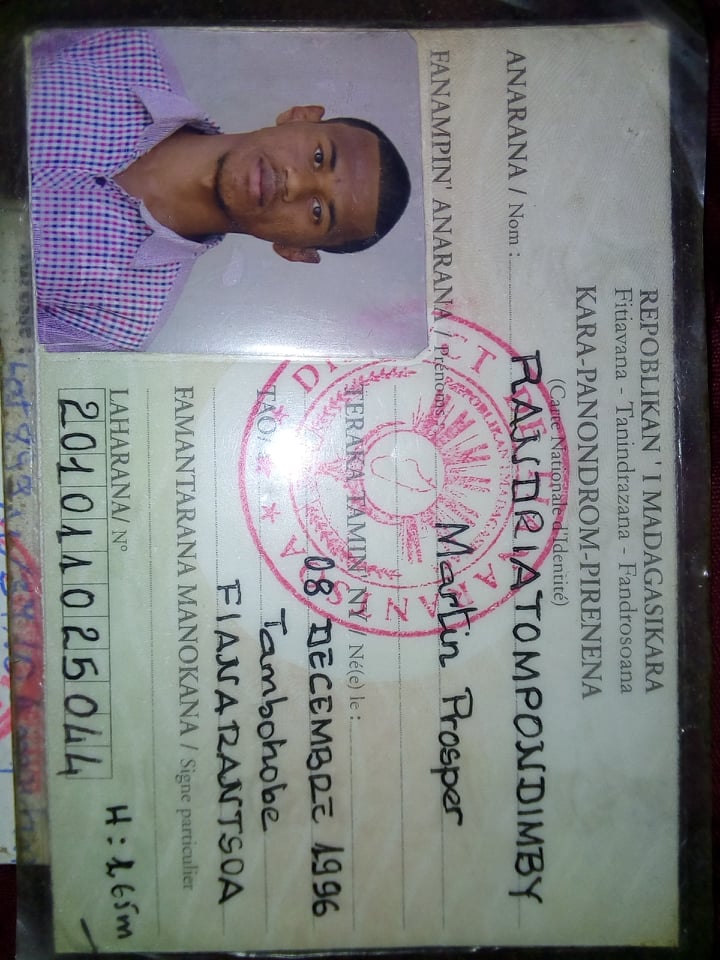 REPOBLIKAN'I MADAGASIKARA
Fitiavana - Tanindrazana - Fandrosoana
KARA-PANONDROM-PIRENENA
(Carte Nationale d'Identité)
ANARANA / Nom : RANDRIATOMPONDIMBY
FANAMPIN' ANARANA / Prénoms Martin Prosper
TERAKA TAMIN' NY / Né(e) le :
08 DECEMBRE 1996
TAO/ Tambohobe
FIANARANTSOA
FAMANTARANA MANOKANA / Signe particulier
LAHARANA/ N° H : 165m
201011025044